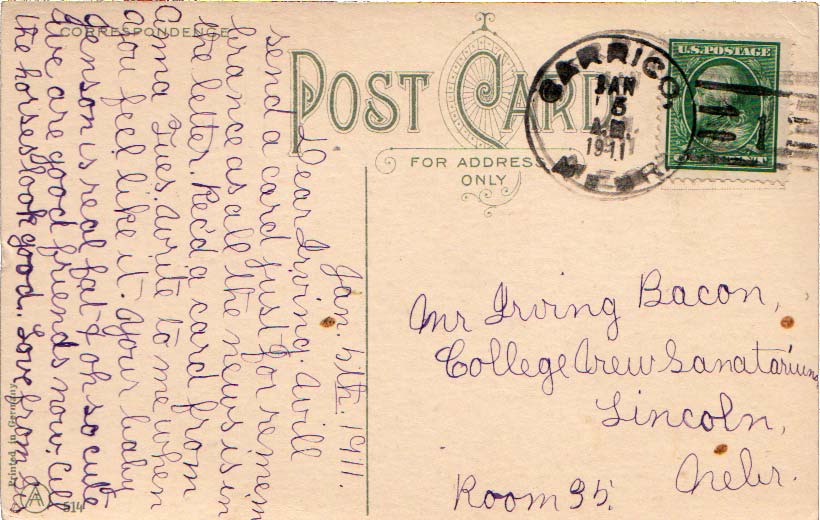 CORRESPONDENCE
POST CARD
FOR ADDRESS
ONLY
U.S. POSTAGE
CARRICO,
JAN
5
A.M.
1911
NEBR.
1
Jan. 4th. 1911.
Dear Irving. Will
send a card just for remem
brance as all the news is in
the letter. Rec'd a card from
Anna Tues. Write to me when
you feel like it. Your baby
Jenson is real fat & oh so cute
Live are good friends now. All
the horses look good. Love from Sis
Mr Irving Bacon,
College View Sanatarium,
Lincoln,
Nebr.
Room 35.
Printed in Germany
A
514